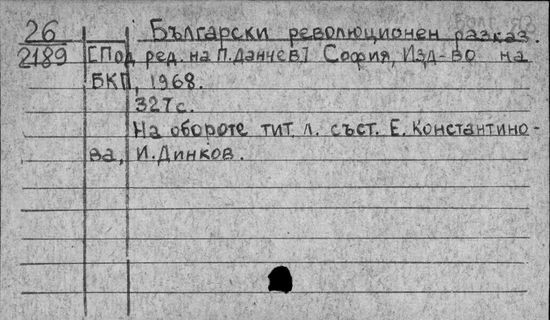 Болг. яз.
26 Български революционен разказ.
2189 [Под ред. на П. Данчев] София, Изд-во на
БКП, 1968.
327 с.
На обороте тит. л. съст. Е. Константино-
ва, И. Динков.